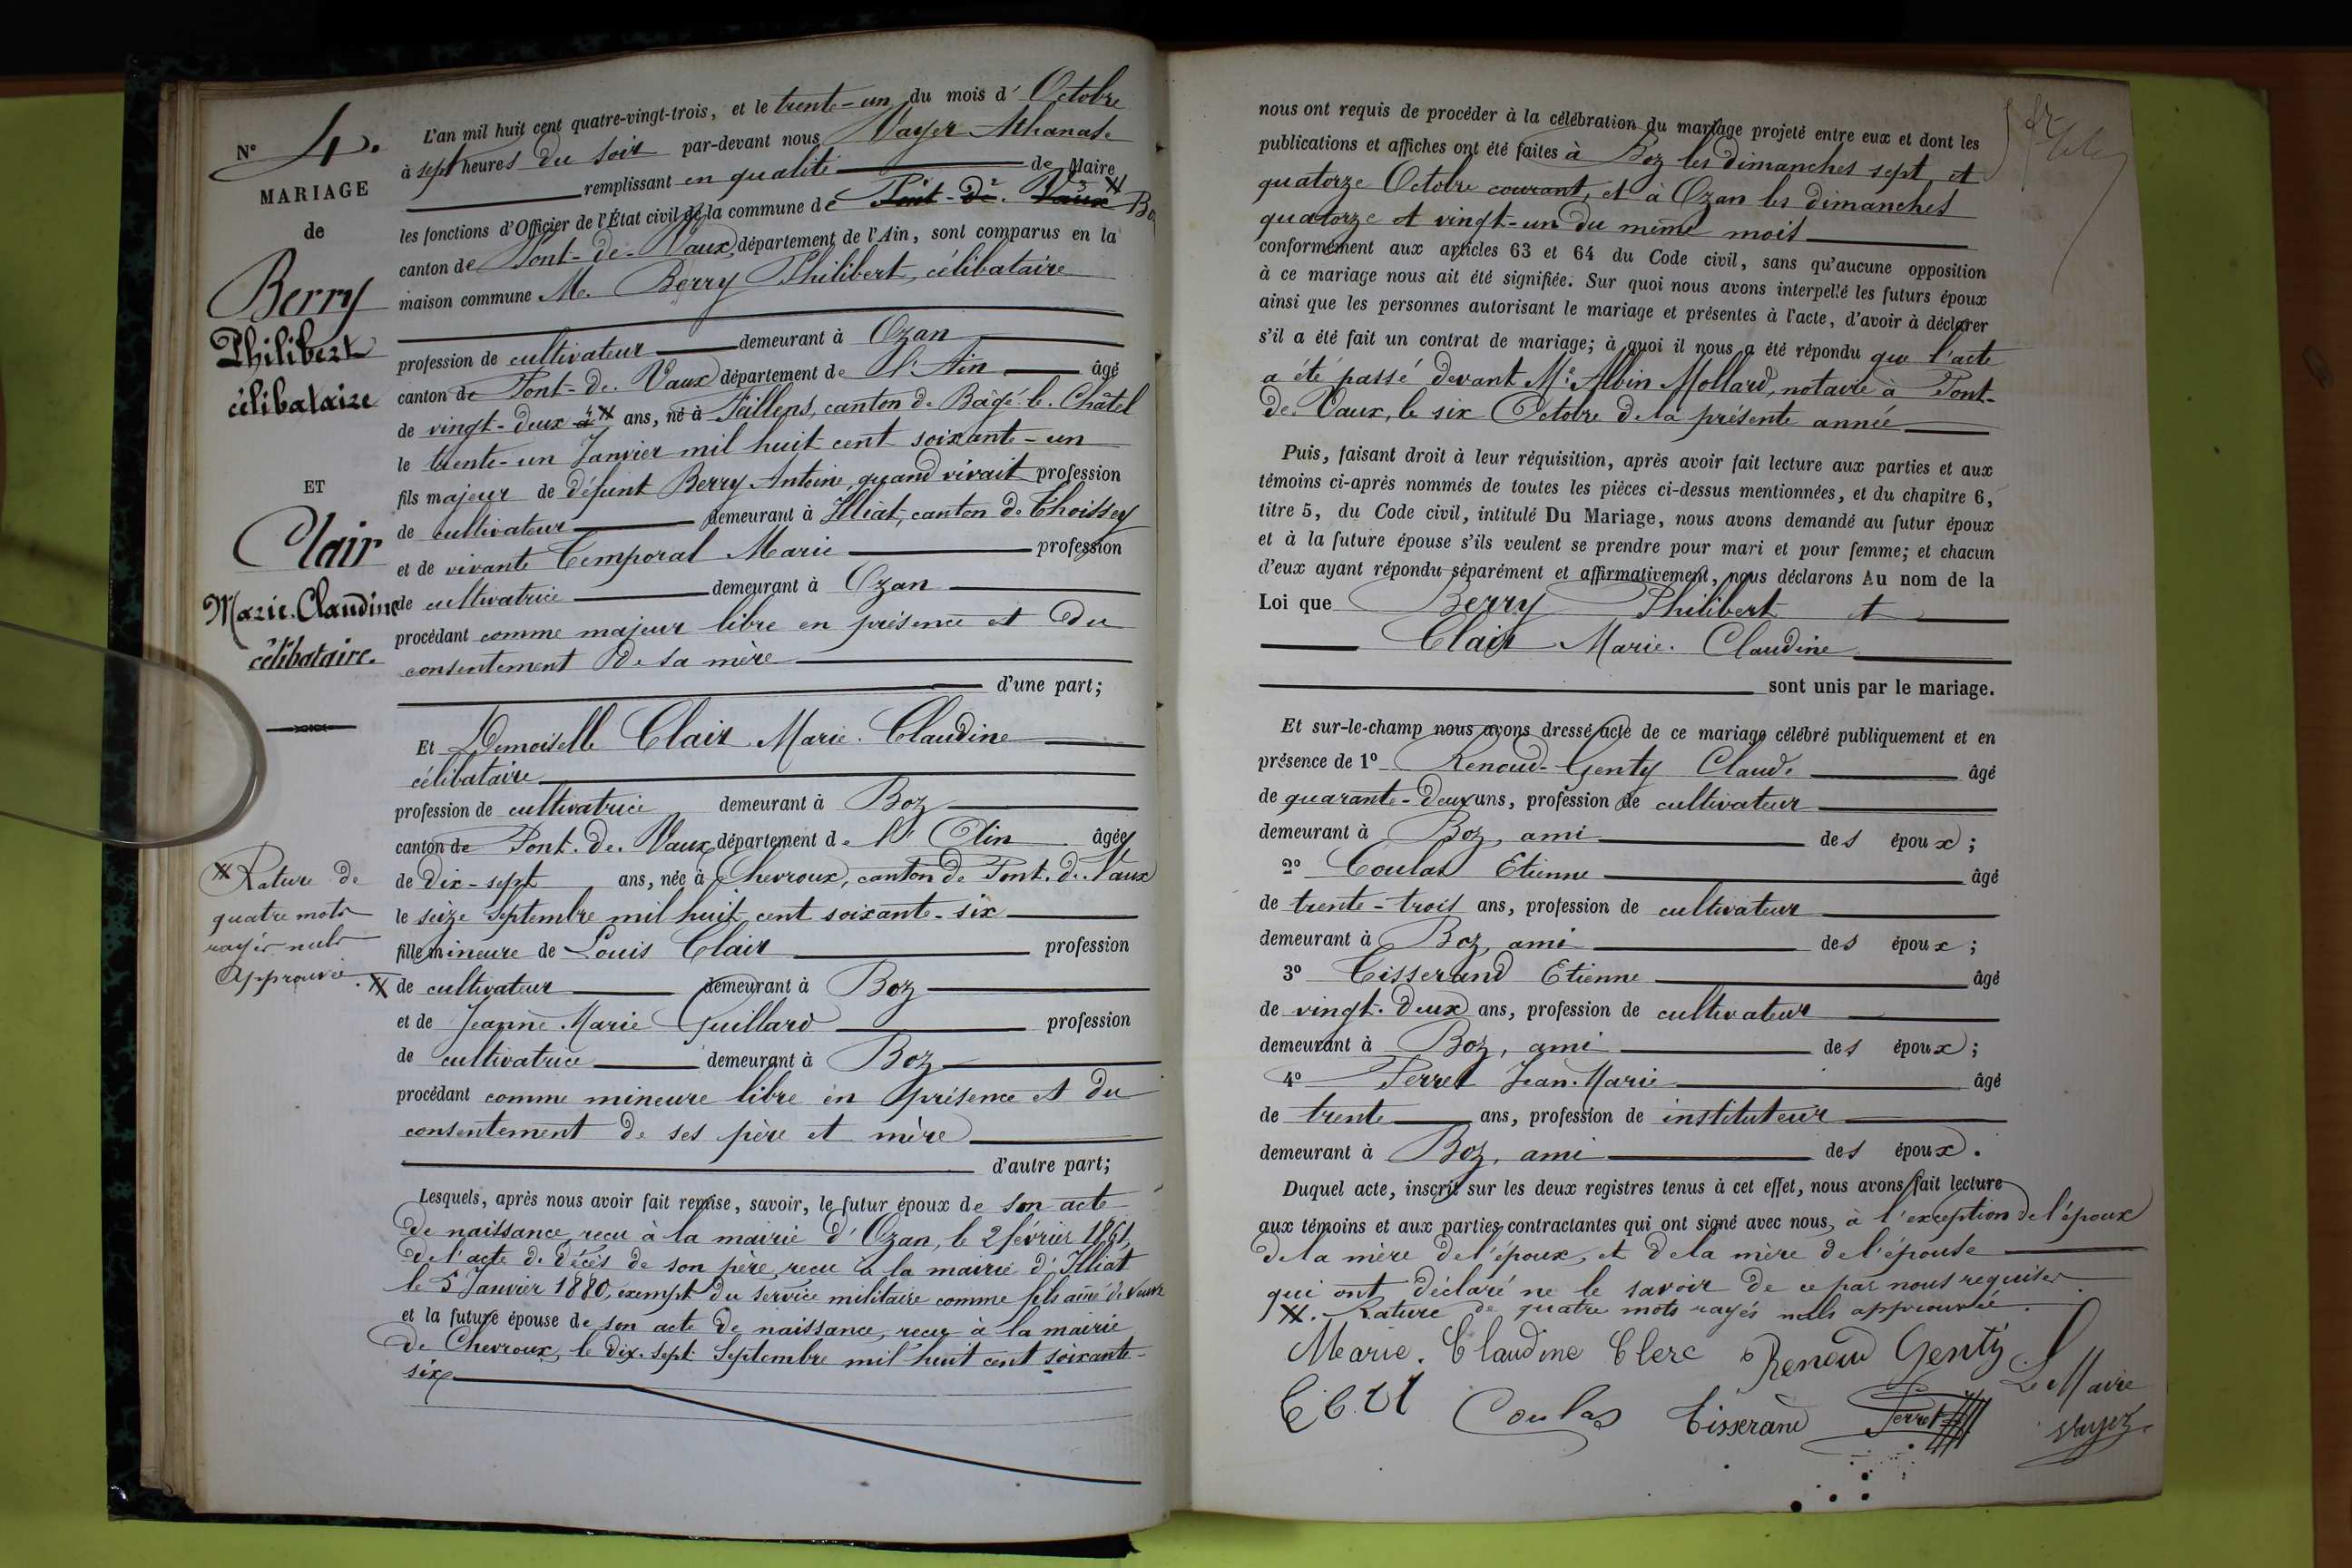 N° 4.
MARIAGE
de
Berry
Philibert
célibataire
ET
Clair
Marie. Claudine
célibataire.
X Rature de
quatre mots
rayés nuls
approuvée. X
L'an mil huit cent quatre-vingt-trois, et le trente-un du mois d' Octobre
à sept heures du soir par-devant nous Vayer Athanase
remplissant en qualité de Maire
les fonctions d'Officier de l'État civil de la commune de Pont-de-Vaux X Boz
canton de Pont-de-Vaux, département de l'Ain, sont comparus en la
maison commune M. Berry Philibert, célibataire
profession de cultivateur demeurant à Ozan
canton de Pont-de-Vaux département de l'Ain âgé
de vingt-deux à X ans, né à Feillens, canton de Bâgé-le-Châtel
le trente-un Janvier mil huit cent soixante-un
fils majeur de défunt Berry Antoine, quand vivait profession
de cultivateur demeurant à Illiat, canton de Thoissey
et de vivante Temporal Marie profession
de cultivatrice demeurant à Ozan
procédant comme majeur libre en présence et du
consentement de sa mère
d'une part;
Et Demoiselle Clair Marie. Claudine
célibataire
profession de cultivatrice demeurant à Boz
canton de Pont. de. Vaux, département de l'Ain âgée
de dix-sept ans, née à Chevroux, canton de Pont. de. Vaux
le seize Septembre mil huit cent soixante-six
fille mineure de Louis Clair profession
de cultivateur demeurant à Boz
et de Jeanne. Marie Guillard profession
de cultivatrice demeurant à Boz
procédant comme mineure libre en présence et du
consentement de ses père et mère
d'autre part;
Lesquels, après nous avoir fait remise, savoir, le futur époux de son acte
de naissance, reçu à la mairie d'Ozan, le 2 février 1861,
de l'acte de décès de son père, reçu à la mairie d'Illiat
le 5 Janvier 1880, exempt du service militaire comme fils aîné de veuve
et la future épouse de son acte de naissance, reçu à la mairie
de Chevroux, le dix-sept Septembre mil huit cent soixante-
six
nous ont requis de procéder à la célébration du mariage projeté entre eux et dont les
publications et affiches ont été faites à Boz les dimanches sept et
quatorze Octobre courant, et à Ozan les dimanches
quatorze et vingt-un du même mois
conformément aux articles 63 et 64 du Code civil, sans qu'aucune opposition
à ce mariage nous ait été signifiée. Sur quoi nous avons interpellé les futurs époux
ainsi que les personnes autorisant le mariage et présentes à l'acte, d'avoir à déclarer
s'il a été fait un contrat de mariage; à quoi il nous a été répondu que l'acte
a été passé devant Me Albin Mollard, notaire à Pont-
de. Vaux, le six Octobre de la présente année
Puis, faisant droit à leur réquisition, après avoir fait lecture aux parties et aux
témoins ci-après nommés de toutes les pièces ci-dessus mentionnées, et du chapitre 6,
titre 5, du Code civil, intitulé Du Mariage, nous avons demandé au futur époux
et à la future épouse s'ils veulent se prendre pour mari et pour femme; et chacun
d'eux ayant répondu séparément et affirmativement, nous déclarons Au nom de la
Loi que Berry Philibert et
Clair Marie. Claudine
sont unis par le mariage.
Et sur-le-champ nous avons dressé acte de ce mariage célébré publiquement et en
présence de 1° Renoud-Genty Claude âgé
de quarante-deux ans, profession de cultivateur
demeurant à Boz, ami des époux;
2° Coulas Etienne âgé
de trente-trois ans, profession de cultivateur
demeurant à Boz, ami des époux;
3° Tisserand Etienne âgé
de vingt-deux ans, profession de cultivateur
demeurant à Boz, ami des époux;
4° Perret Jean. Marie âgé
de trente ans, profession de instituteur
demeurant à Boz, ami des époux.
Duquel acte, inscrit sur les deux registres tenus à cet effet, nous avons fait lecture
aux témoins et aux parties contractantes qui ont signé avec nous, à l'exception de l'époux
de la mère de l'époux, et de la mère de l'épouse
qui ont déclaré ne le savoir de ce par nous requises.
X. Rature de quatre mots rayés nuls approuvée.
Marie. Claudine Clerc Renoud Genty Le Maire
Coulas Tisserand Perret Vayer